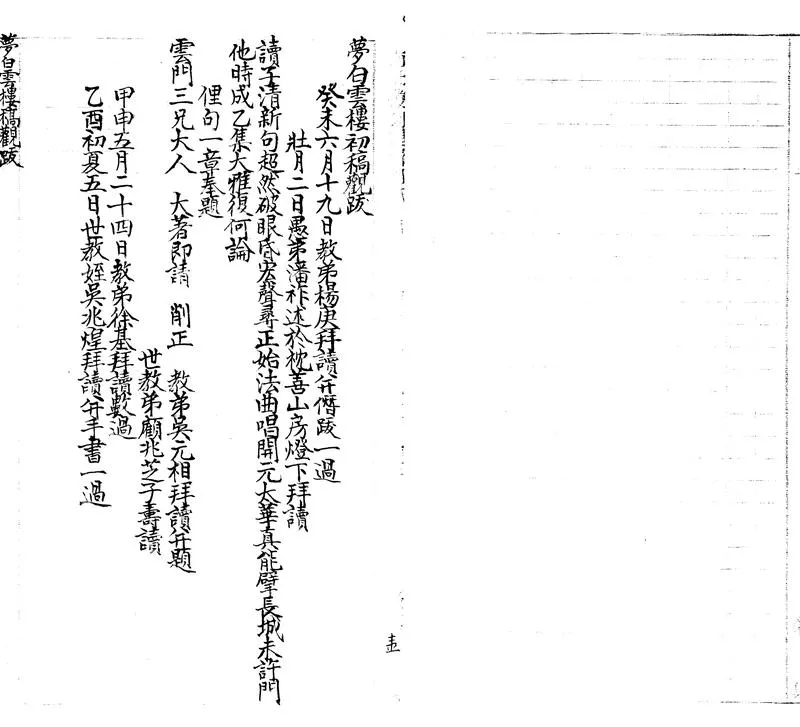 夢白雲樓初稿觀跋
癸未六月十九日教弟楊庚拜讀并僭跋一過
壯月二日愚弟潘祚述於枕善山房燈下拜讀
讀子清新句超然破眼昏宏聲尋正始法曲唱開元太華真能擘長城未許門
他時成乙集大雅復何論
俚句一章奉題
雲門三兄大人 大著即請 削正 教弟吳元相拜讀并題
世教弟顧兆芝子壽讀
甲申五月二十四日教弟徐基拜讀數過
乙酉初夏五日世教姪吳兆煌拜讀并手書一過
夢白雲樓稿觀跋